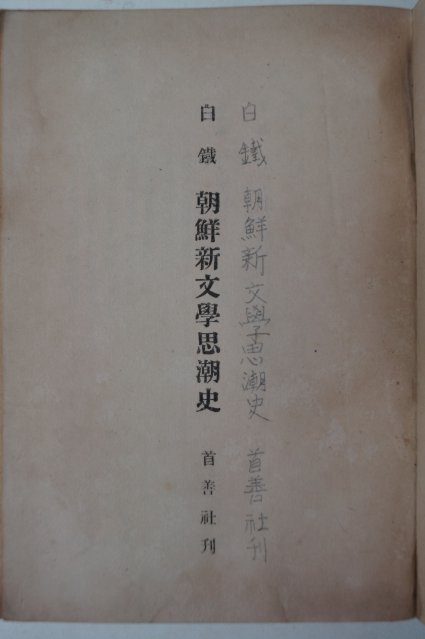 白鐵 朝鮮新文學思潮史 首善社刊
白鐵 朝鮮新文學思潮史 首善社刊